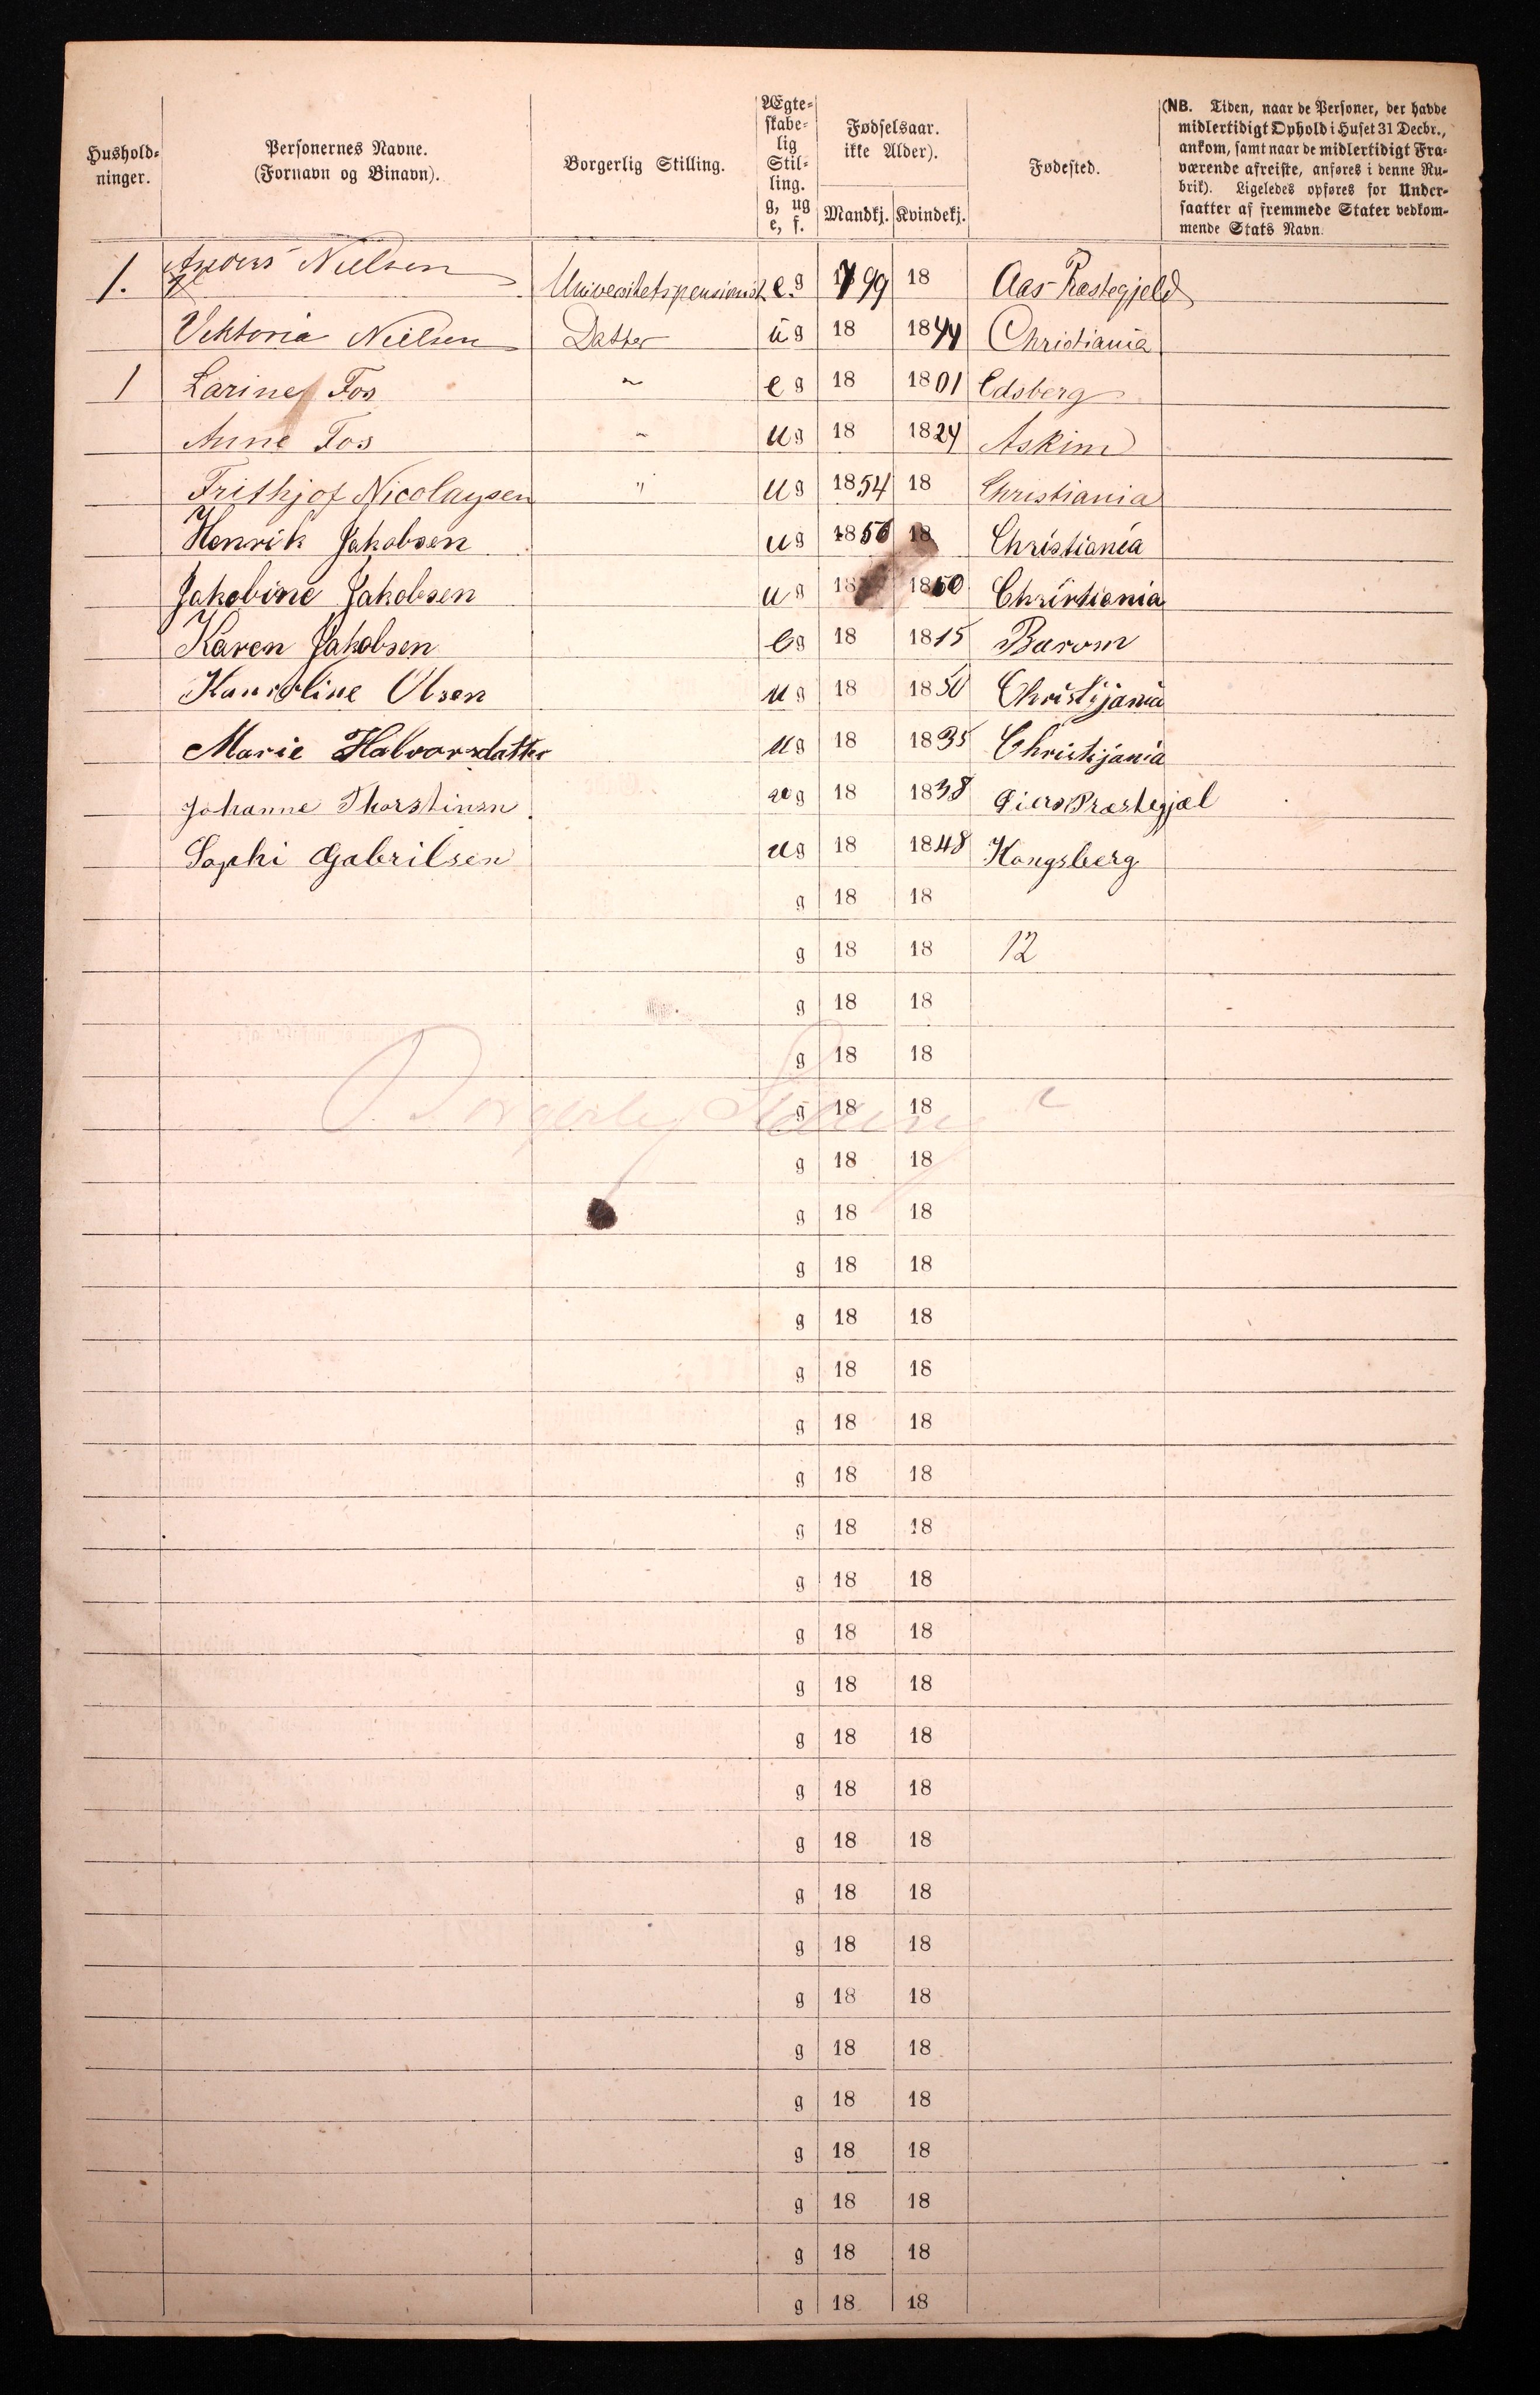 Hushold-
ninger.
Personernes Navne.
(Fornavn og Binavn).
Borgerlig Stilling.
Ægte-
skabe-
lig
Stil-
ling.
g, ug
e, f.
Fødselsaar.
ikke Alder).
Mandkj. Kvindekj.
Fødested.
(NB. Tiden, naar de Personer, der havde
midlertidigt Ophold i Huset 31 Decbr.,
ankom, samt naar de midlertidigt Fra-
værende afreiste, anføres i denne Ru-
brik). Ligeledes opføres for Under-
saatter af fremmede Stater vedkom-
mende Stats Navn.
1. Anders Nielsen Universitetspensionist e. g 1799 18 Aas Præstegjeld
Viktoria Nielsen Datter u g 18 1844 Christiania
1 Larine Fos " e g 18 1801 Edsberg
Anne Fos " u g 18 1824 Askim
Frithjof Nicolaysen " u g 1854 18 Christiania
Henrik Jakobsen u g 1856 18 Christiania
Jakobine Jakobsen u g 18 1860 Christiania
Karen Jakobsen e g 18 1815 Barom
Olsen u g 18 1850 Christijania
Marie Halvorsdatter u g 18 1835 Christijania
Johanne Thorstinsn u g 18 1838 Præstegjæl
Sophi Gabrilsen u g 18 1848 Kongsberg
g 18 18
g 18 18 12
g 18 18
g 18 18
Borgerlig Stilling g 18 18
g 18 18
g 18 18
g 18 18
g 18 18
g 18 18
g 18 18
g 18 18
g 18 18
g 18 18
g 18 18
g 18 18
g 18 18
g 18 18
g 18 18
g 18 18
g 18 18
g 18 18
g 18 18
g 18 18
g 18 18
g 18 18
g 18 18
g 18 18